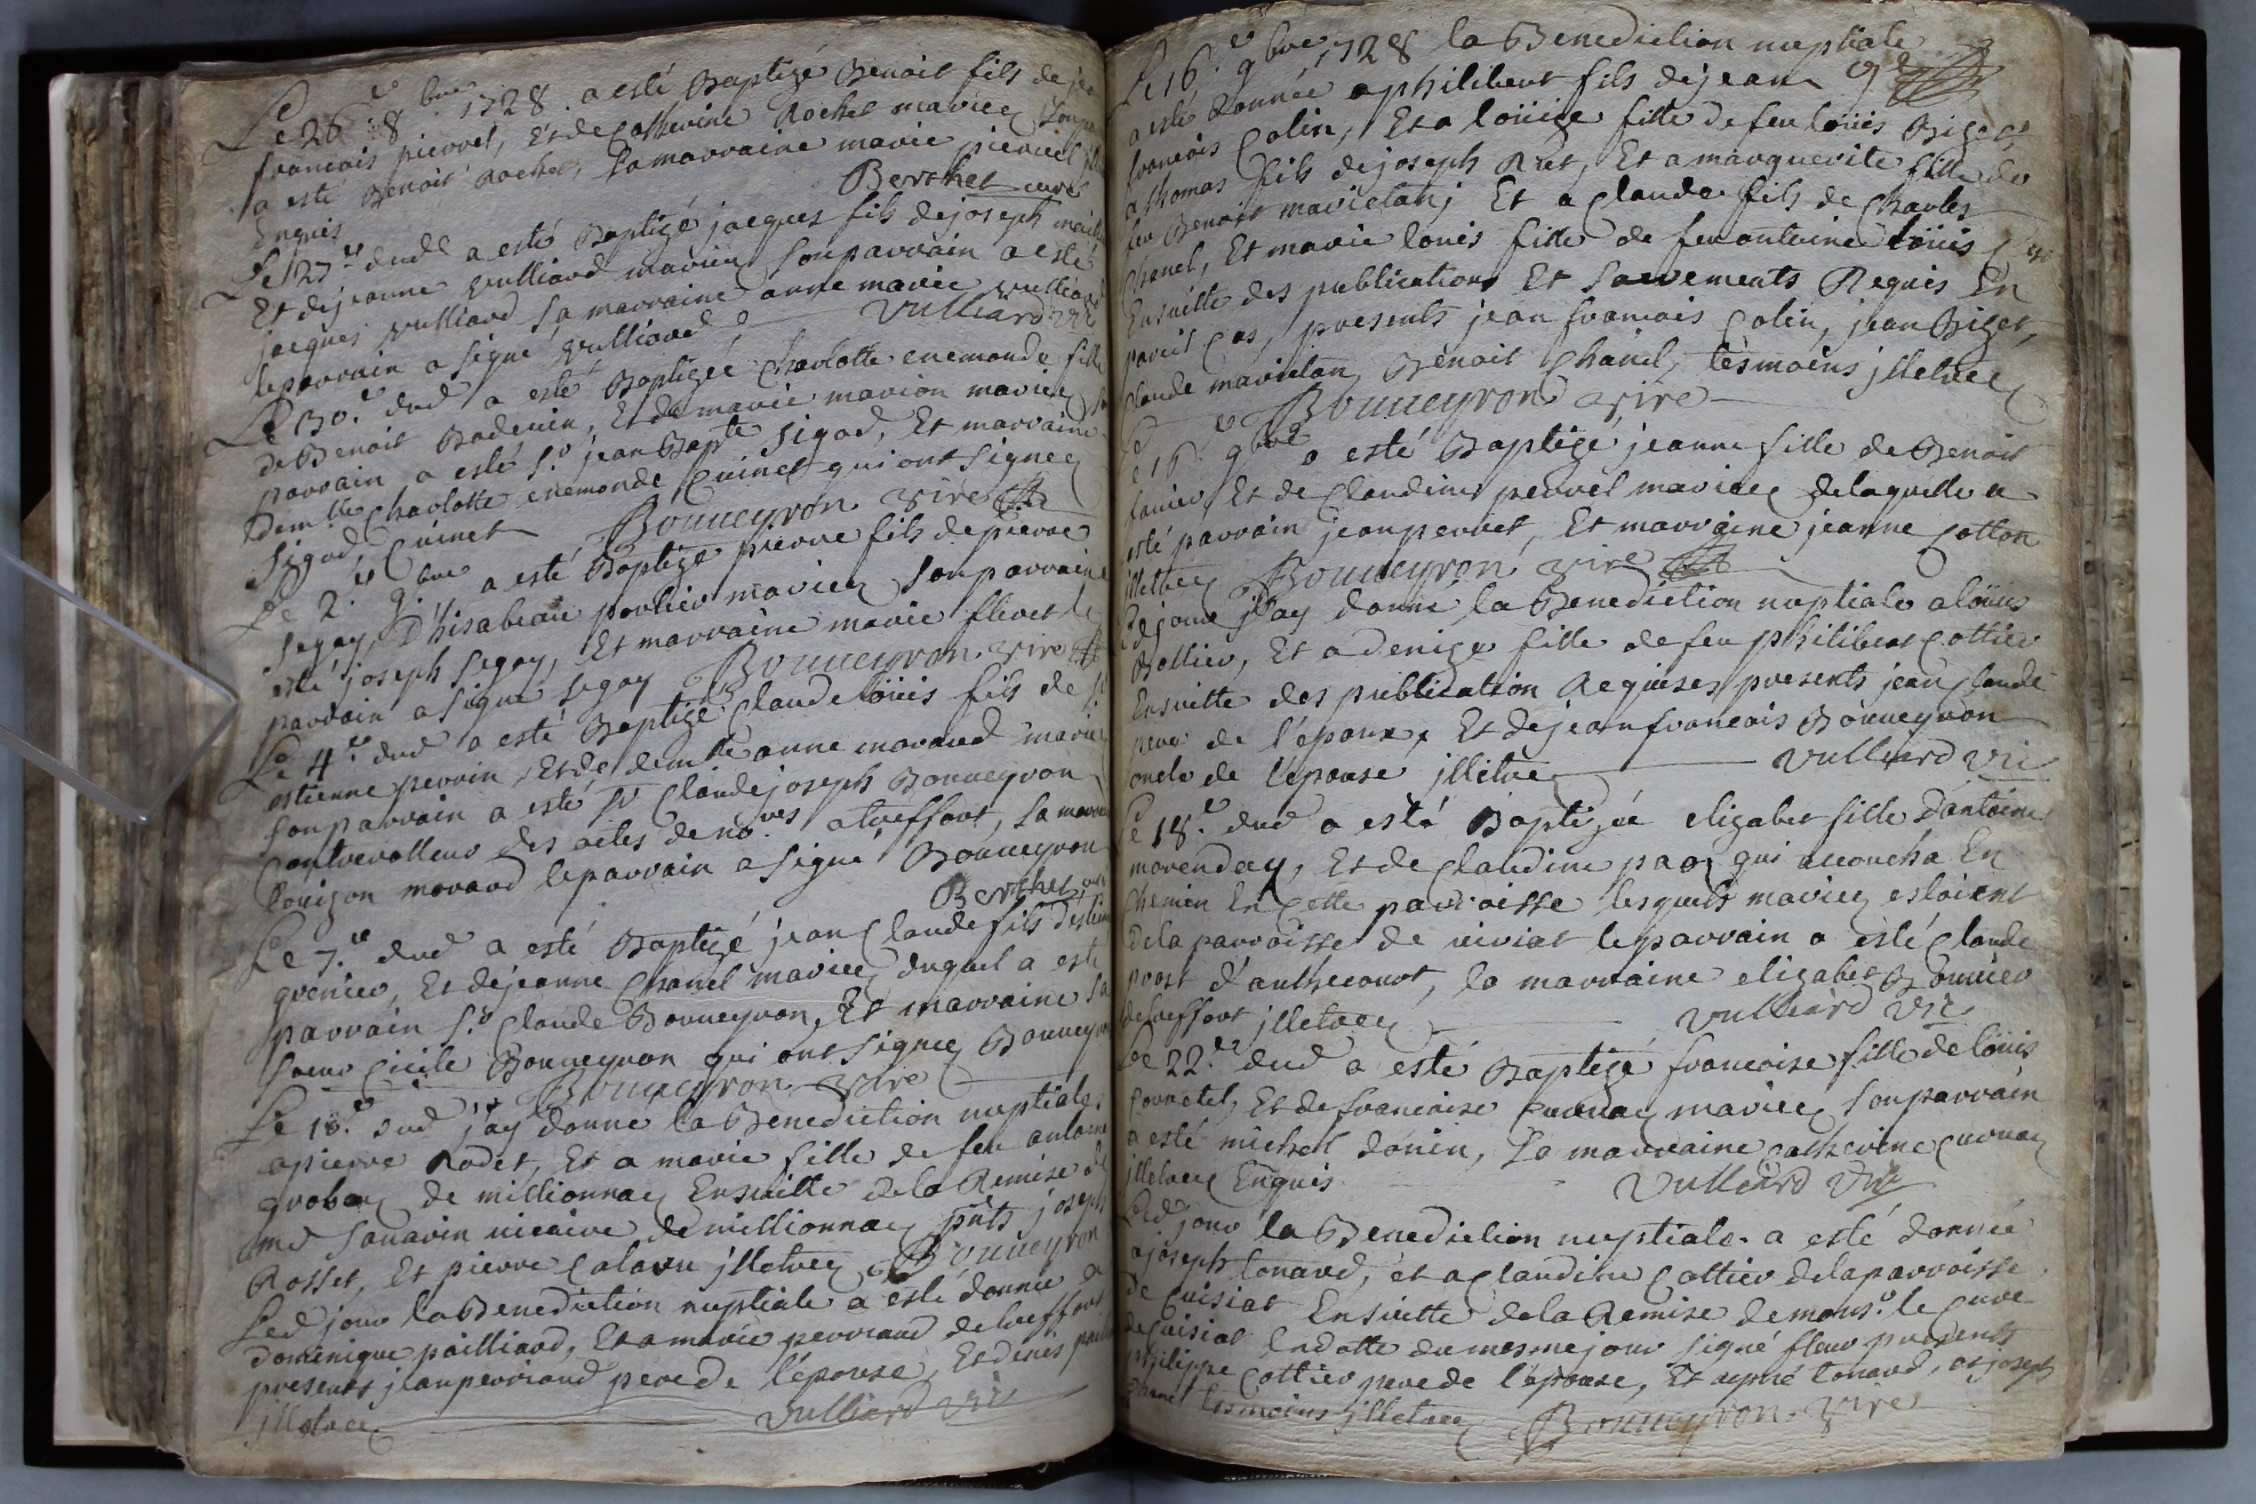 Le 26.e 8bre 1728. a esté Baptizé Benoit fils de jean
francois pierret, Et de Catherine Rochet mariez Son par
a esté Benoit Rochet, Sa marraine marie pierret
Enquis Berthet curé
Le 27.e dud a esté Baptizé jacques fils de joseph
Et de jeanne vulliard mariez Son parrain a esté
jacques vulliard Sa marraine anne marie vulliard
le parrain a signé vulliard Vulliard vic
Le 30.e dud a esté Baptizée Charlotte enemonde fille
de Benoit Badenin, Et de marie marion mariez
parrain a esté Sr. jean Bapte Sigod, Et marraine
Demlle Charlotte enemonde Cuinet qui ont Signez
Sigod, Cuinet Bouueyron vire
Le 2.e 9.bre a esté Baptizé pierre fils de pierre
Segay, D'hisabeau portier mariez Son parrain
esté joseph Segay, Et marraine marie flevet le
parrain a signé Segay Bouueyron vire
Le 4.e dud a esté Baptizé Claude loüis fils de Sr
estienne perrin, Et de demlle anne morand mariez
Son parrain a esté Sr Claude joseph Bouueyron
Controolleur des actes de no.res a treffort, Sa marr
louizon morand le parrain a signé Bouueyron
Berthet curé
Le 7.e dud a esté Baptizé jean Claude fils d'estienne
grenier, Et de jeanne Chanel mariez duquel a esté
parrain Sr. Claude Bouueyron, Et marraine Sa
Soeur Cicile Bouueyron qui ont Signez Bouueyron
Bouueyron vire
Le 10.e dud j'ay donné la Benediction nuptiale
a pierre Rodet, Et a marie fille de feu antoine
de millionnaz Ensuitte de la Remise de
mr Sauarin vicaire de millionnaz pnts joseph
Rosset, Et pierre illetrez Bouueyron
Led jour la Benediction nuptiale a esté donnée a
dominique pailliard, Et a marie perriaud de treffort
presents jean perriaud pere de l'épouse, Et denis
illetrez Vulliard vic
Le 16.e 9bre 1728 la Benediction nuptiale
a esté donnée a philibert fils de jean
francois Colin, Et a loüize fille de feu loüis Bizet,
a thomas fils de joseph Rret, Et a marguerite fille de
feu Benoit marietan; Et a Claude fils de Charles
Chanel, Et marie louis fille de feu antoine loüis
Ensuitte des publications Et Sacrements Requis En
pareil Cas, presents jean francois Colin, jean Bizet,
Claude marietan, Benoit Chanel, tesmoins illetrez
Bouueyron vire
Le 16.e 9bre a esté Baptizé jeanne fille de Benoit
Et de Claudine perret mariez de laquelle a
esté parrain jean perret, Et marraine jeanne Cotton
illetrez Bouueyron vire
Led jour j'ay donné la Benediction nuptiale a loüis
Bollier, Et a denize fille de feu philibert Cottier
Ensuitte des publication Requises presents jean Claude
pere de l'époux, Et de jean francois Bouueyron
oncle de l'épouse illetrez Vulliard Vic
Le 18.e dud a esté Baptizée elizabet fille d'antoine
morenday, Et de Claudine paoz qui accoucha En
Chemin En Cette parroisse lesquels mariez estoient
de la parroisse de le parrain a esté Claude
prost d'anthecourt, la marraine elizabet Bouuier
de treffort illetrez Vulliard Vic
Le 22.e dud a esté Baptizé francoise fille de loüis
Et de francoise Cuenaz mariez Son parrain
a esté michel donin, La marraine catherine Cuenaz
illetrez Enquis Vulliard Vic
Led jour la Benediction nuptiale a esté donnée
a joseph tonard, et a Claudine Cottier de la parroisse
de Cuisiat Ensuitte de la Remise de monsr. le Cure
de Cuisiat En datte du mesme jour signé fleur presents
philippe Cottier pere de l'épouse, Et aymé tonard, et joseph
Chanel tesmoins illetrez Bouueyron vire